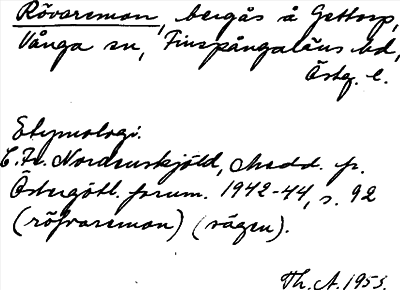 Rövaremon, bergås å Gettorp,
Vånga sn, Finspångaläns hd,
Östg. l.
Etymologi.
C. Fr. Nordenskjöld, Medd. fr.
Östergötl. fornm. 1942-44, s. 92
(röfvaremon) (vägen).
Th. A. 1953.